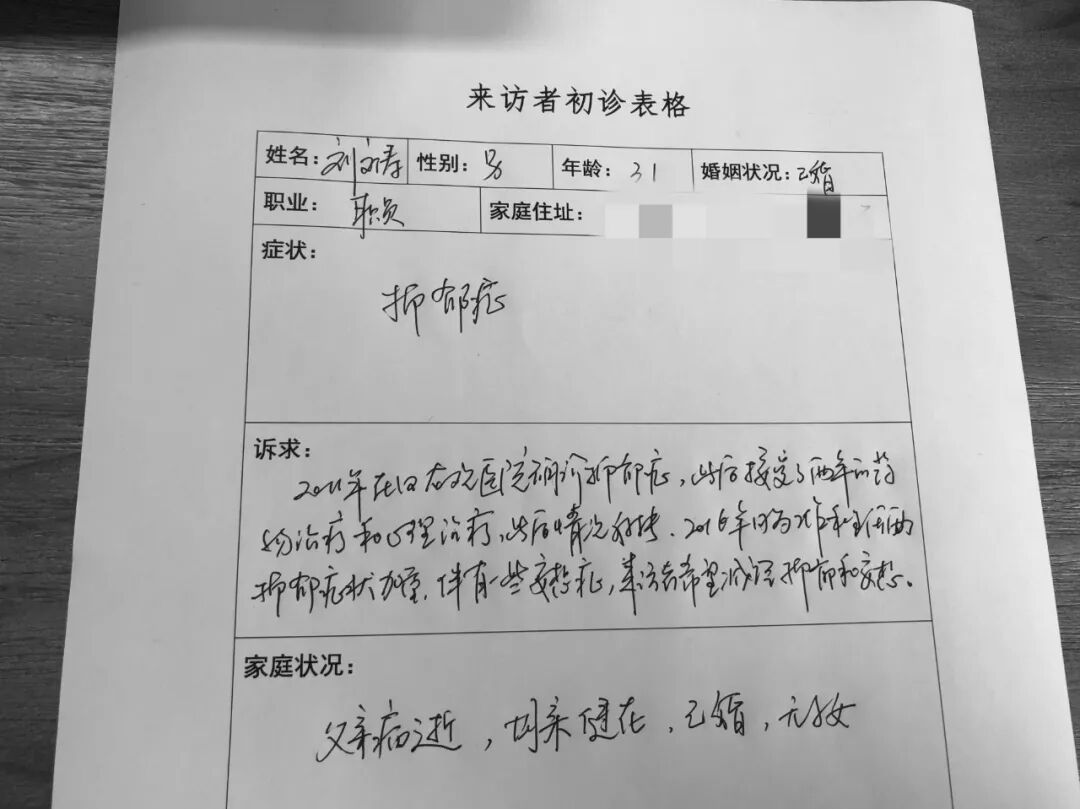 来访者初诊表格
姓名：刘文涛 性别：男 年龄：31 婚姻状况：已婚
职业：职员 家庭住址：
症状：
抑郁症
诉求：
2011年在日本医院确诊抑郁症，此后接受了两年的药
物治疗和心理治疗，此后情况好转。2016年因为工作和
抑郁症状加重，伴有一些妄想症，来访者希望减轻抑郁和妄想。
家庭状况：
父亲病逝，母亲健在，已婚，无子女